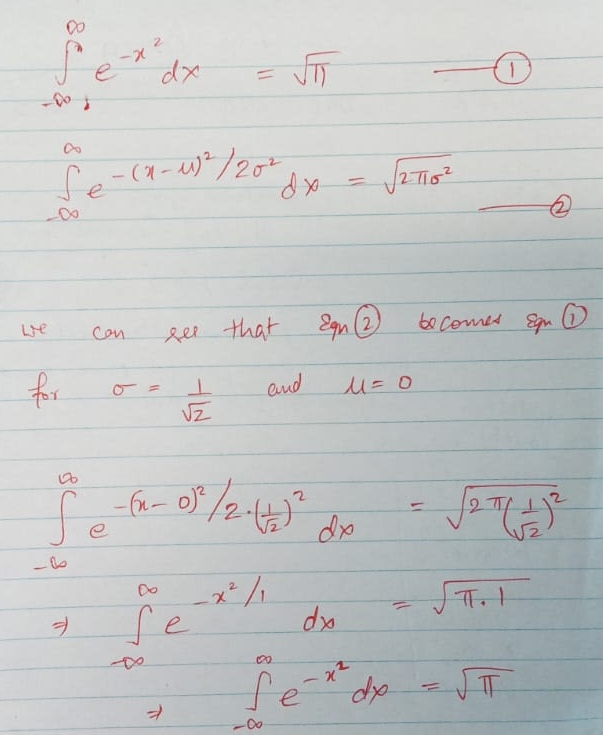 ∫_{-∞}^{∞} e^{-x²} dx = √π —— ①
∫_{-∞}^{∞} e^{-(x-μ)²/2σ²} dx = √(2πσ²) —— ②
We can see that Eqn ② becomes Eqn ①
for σ = 1/√2 and μ = 0
∫_{-∞}^{∞} e^{-(x-0)²/2·(1/√2)²} dx = √(2π(1/√2)²)
⇒ ∫_{-∞}^{∞} e^{-x²/1} dx = √(π·1)
⇒ ∫_{-∞}^{∞} e^{-x²} dx = √π